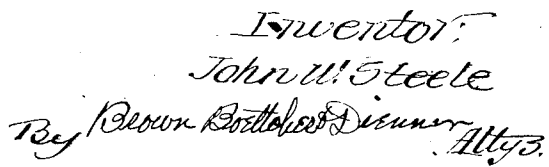 Inventor:
John W. Steele
By Brown Boettcher & Dienner
Attys.